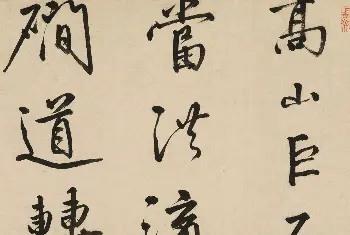 高山巨
當洪流
磵道轉